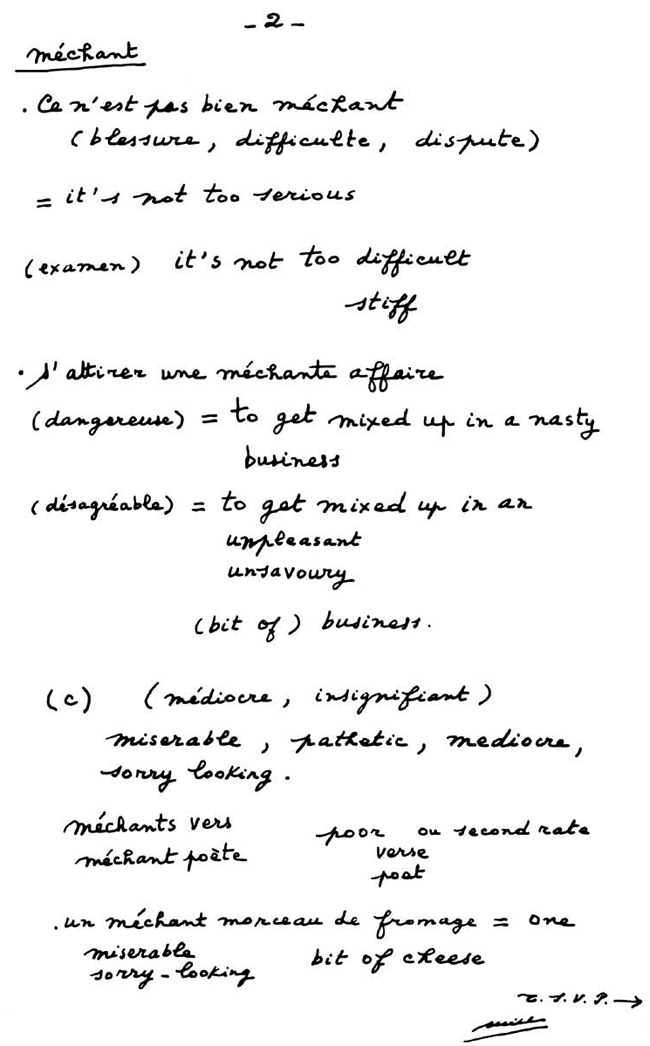 - 2 -
méchant
. Ce n'est pas bien méchant
(blessure, difficulte, dispute)
= it's not too serious
(examen) it's not too difficult
stiff
. S'attirer une méchante affaire
(dangereuse) = to get mixed up in a nasty
business
(désagréable) = to get mixed up in an
unpleasant
unsavoury
(bit of) business.
(c) (médiocre, insignifiant)
miserable, pathetic, mediocre,
sorry looking.
méchants vers poor ou second rate
verse
méchant poète
poet
. un méchant morceau de fromage = one
miserable bit of cheese
sorry-looking
T. S. V. P. →
suite